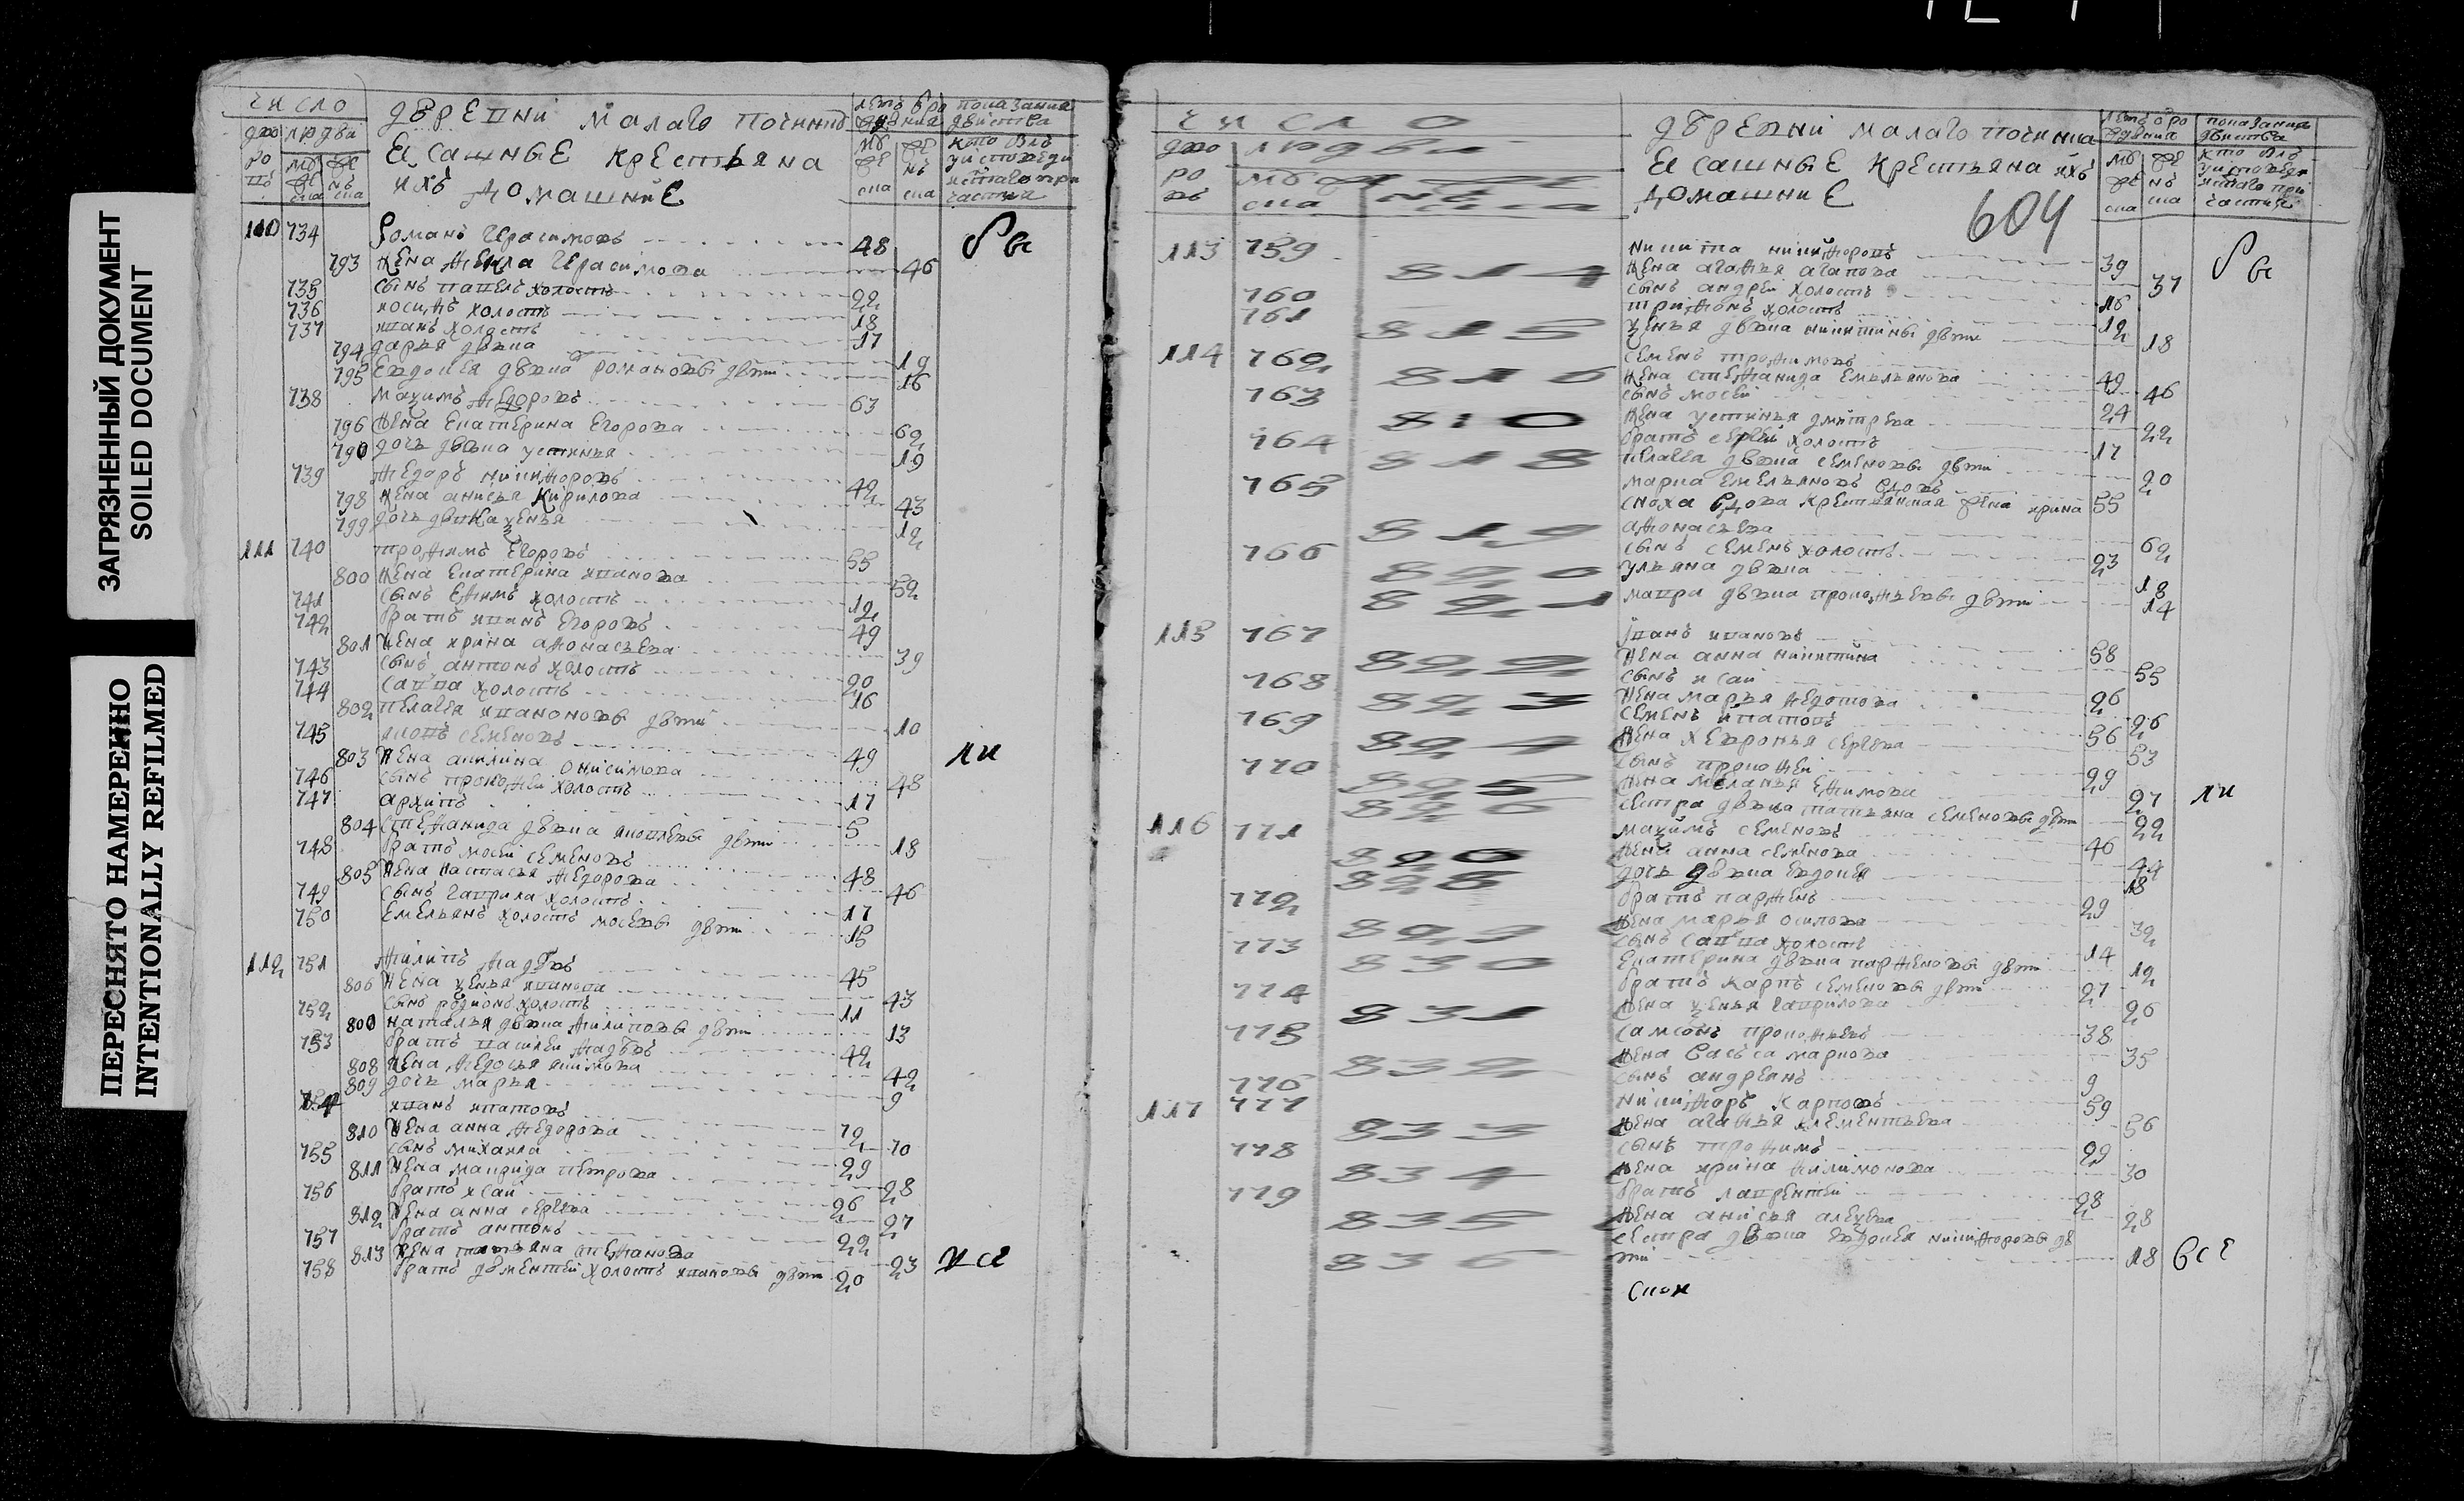 ЗАГРЯЗНЕННЫЙ ДОКУМЕНТ
SOILED DOCUMENT
ПЕРЕСНЯТО НАМЕРЕННО
INTENTIONALLY REFILMED
число
деревни малаго починка
ясашные крестьяна
ихъ домашние
110 734 Романъ Герасимовъ 48
793 жена Фекла Герасимова 46
735 сынъ павелъ холостъ 22
736 иосифъ холостъ 18
737 иванъ холостъ 17
794 дарья девка 19
795 Евдокея девка романовы дети 16
738 Мазимъ Федоровъ 63
796 жена Екатерина Егорова 62
790 дочь девка устинья 19
739 Федоръ никифоровъ 42
798 жена анисья Кирилова 43
799 дочь девка зенья 12
111 740 трофимъ Егоровъ 55
800 жена Екатерина иванова 52
741 сынъ Ефимъ холостъ 12
742 братъ иванъ Егоровъ 49
801 жена ирина афонасьева 39
743 сынъ антонъ холостъ 20
744 савва холостъ 16
802 пелагея ивановы дети 10
745 яковъ семеновъ 49
803 жена акилина онисимова 48
746 сынъ прокофей холостъ 17
747 архипъ 5
804 стефанида девка яковлевы дети 18
748 братъ мосей семеновъ 48
805 жена настасья федорова 46
749 сынъ гаврила холостъ 17
750 емельянъ холостъ мосеевы дети 15
112 751 филипъ фадеевъ 45
806 жена зенья иванова 43
752 сынъ родионъ холостъ 11
800 наталья девка филиповы дети 13
753 братъ василей фадеевъ 42
808 жена федосья якимова 42
809 дочь марья 9
754 иванъ ипатовъ 72
810 жена анна федорова 70
755 сынъ михаила 29
811 жена маврида петрова 28
756 братъ исай 26
812 жена анна сергеева 27
757 братъ антонъ 22
813 жена татьяна стефанова 23 все
758 братъ дементей холостъ ивановы дети 20
число
деревни малаго починка
ясашные крестьяна ихъ
домашние
604
113 759 никита никифоровъ 39
814 жена агафья агапова 37
760 сынъ андрей холостъ 16
761 трифонъ холостъ 12
815 зенья девка никитины дети 18
114 762 семенъ трофимовъ 49
816 жена стефанида Емельянова 46
763 сынъ мосей 24
810 жена устинья дмитрева 22
764 братъ сергей холостъ 17
818 пелагея девка семеновы дети 20
765 марка емельяновъ вдовъ 55
сноха вдова крестьянская жена ирина
819 афонасьева 62
766 сынъ семенъ холостъ 23
820 ульяна девка 18
821 мавра девка прокофьевы дети 14
115 767 иванъ ивановъ 58
822 жена анна никитина 55
768 сынъ исай 26
823 жена марья федотова 26
769 семенъ ипатовъ 56
824 жена хевронья сергеева 53
770 сынъ прокофей 29
825 жена меланья ефимова 27
826 сестра девка татьяна семеновы дети 22
116 771 мазимъ семеновъ 46
826 жена анна семенова 44
828 дочь девка евдокея 18
772 братъ парфенъ 29
829 жена марья осипова 32
773 сынъ савва холостъ 14
830 Екатерина девка парфеновы дети 12
774 братъ карпъ семеновы дети 27
831 жена зенья гаврилова 26
775 самсонъ прокофьевъ 38
832 жена васьса маркова 35
776 сынъ андреянъ 9
117 777 никифаръ карповъ 59
833 жена агафья клементьева 56
778 сынъ трофимъ 29
834 жена ирина филимонова 30
779 братъ лаврентей 28
835 жена анисья алезеева 28
сестра девка евдокея никифоровы де
836 ти 18 все